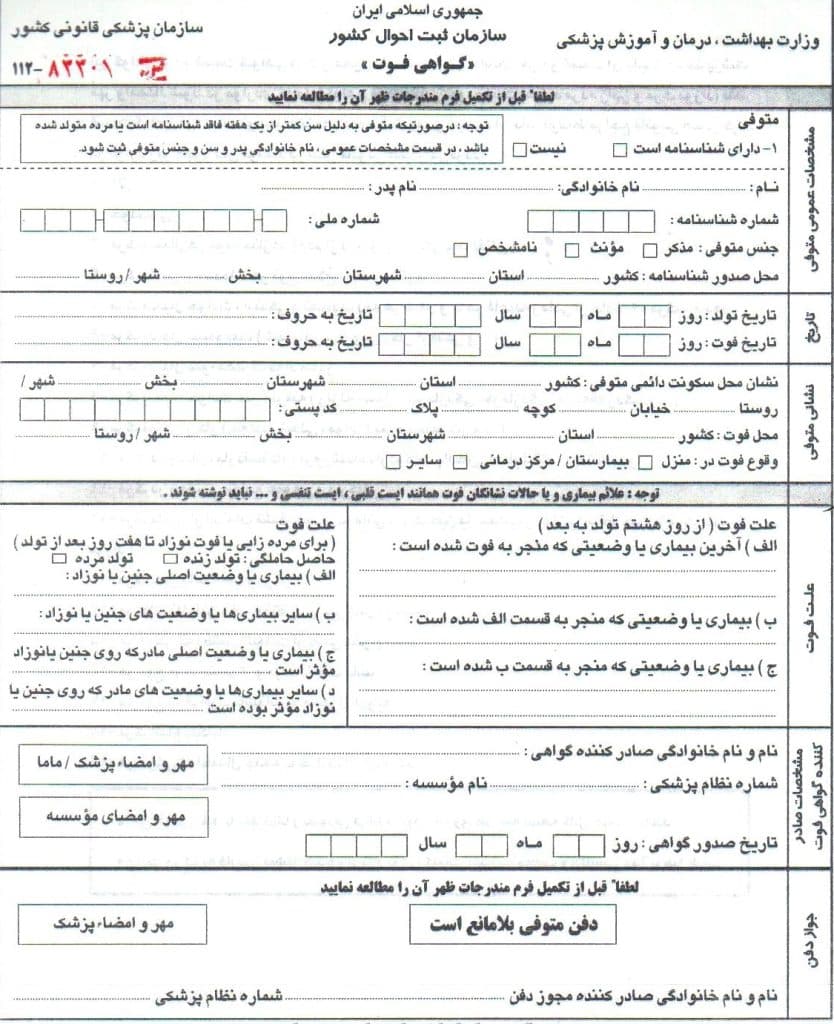 جمهوری اسلامی ایران
وزارت بهداشت ، درمان و آموزش پزشکی
سازمان ثبت احوال کشور
سازمان پزشکی قانونی کشور
«گواهی فوت»
۱۱۲-۸۲۲۰۱
لطفاً قبل از تکمیل فرم مندرجات ظهر آن را مطالعه نمایید
مشخصات عمومی متوفی
متوفی
۱- دارای شناسنامه است نیست
توجه : درصورتیکه متوفی به دلیل سن کمتر از یک هفته فاقد شناسنامه است یا مرده متولد شده
باشد ، در قسمت مشخصات عمومی ، نام خانوادگی پدر و سن و جنس متوفی ثبت شود.
نـام : نام خانوادگی: نام پدر:
شماره شناسنامه : شماره ملی :
جنس متوفی : مذکر مؤنث نامشخص
محل صدور شناسنامه : کشور استان شهرستان بخش شهر / روستا
تاریخ
تاریخ تولد : روز مـاه سال تاریخ به حروف:
تاریخ فوت : روز مـاه سال تاریخ به حروف:
نشانی متوفی
نشان محل سکونت دائمی متوفی : کشور استان شهرستان بخش شهر /
روستا خیابان کوچه پلاک کد پستی :
محل فوت : کشور استان شهرستان بخش شهر / روستا
وقوع فوت در : منزل بیمارستان / مرکز درمانی سایـر
توجه : علائم بیماری و یا حالات نشانگان فوت همانند ایست قلبی ، ایست تنفسی و ... نباید نوشته شوند .
علـت فوت
علت فوت ( از روز هشتم تولد به بعد )
الف ) آخرین بیماری یا وضعیتی که منجر به فوت شده است :
ب ) بیماری یا وضعیتی که منجر به قسمت الف شده است :
ج ) بیماری یا وضعیتی که منجر به قسمت ب شده است :
علت فوت
( برای مرده زایی یا فوت نوزاد تا هفت روز بعد از تولد )
حاصل حاملگی : تولد زنده تولد مرده
الف ) بیماری یا وضعیت اصلی جنین یا نوزاد :
ب ) سایر بیماری‌ها یا وضعیت های جنین یا نوزاد :
ج ) بیماری یا وضعیت اصلی مادرکه روی جنین یانوزاد
مؤثر است
د ) سایر بیماری‌ها یا وضعیت های مادر که روی جنین یا
نوزاد مؤثر بوده است
مشخصات صادر
کننده گواهی فوت
نام و نام خانوادگی صادر کننده گواهی :
مهر و امضاء پزشک / ماما
شماره نظام پزشکی : نام مؤسسه :
مهر و امضای مؤسسه
تاریخ صدور گواهی : روز مـاه سال
جواز دفن
لطفاً قبل از تکمیل فرم مندرجات ظهر آن را مطالعه نمایید
دفن متوفی بلامانع است
مهر و امضاء پزشک
نام و نام خانوادگی صادر کننده مجوز دفن شماره نظام پزشکی